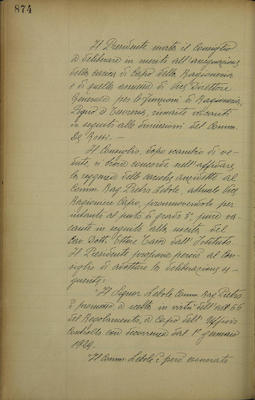 874
Il Presidente invita il Consiglio
a deliberare in merito all'assegnazione
della carica di Capo della Ragioneria
e di quella annessa di Vice Direttore
Generale per le funzioni di Ragioneria,
rimaste vacanti
in seguito alle dimissioni del Comm.
De Rossi. -
Il Consiglio, dopo scambio di ve-
dute, si trova concorde nell'affidare
la reggenza delle cariche anzidette al
Comm. Rag. Pietro Lebole, attuale Vice
Ragioniere Capo, promuovendolo per
intanto al posto di grado 3°, pure va-
cante in seguito alla uscita del
Cav. Dott. Ettore dall'Istituto.
Il Presidente propone perciò al Con-
siglio di adottare la deliberazione se-
guente:
"Il Signor Lebole Comm. Rag. Pietro
è promosso, a scelta, in virtù dell'art. 66
del Regolamento, a Capo dell'Ufficio
Controllo con decorrenza dal 1° gennaio
1929.
"Il Comm. Lebole è però esonerato